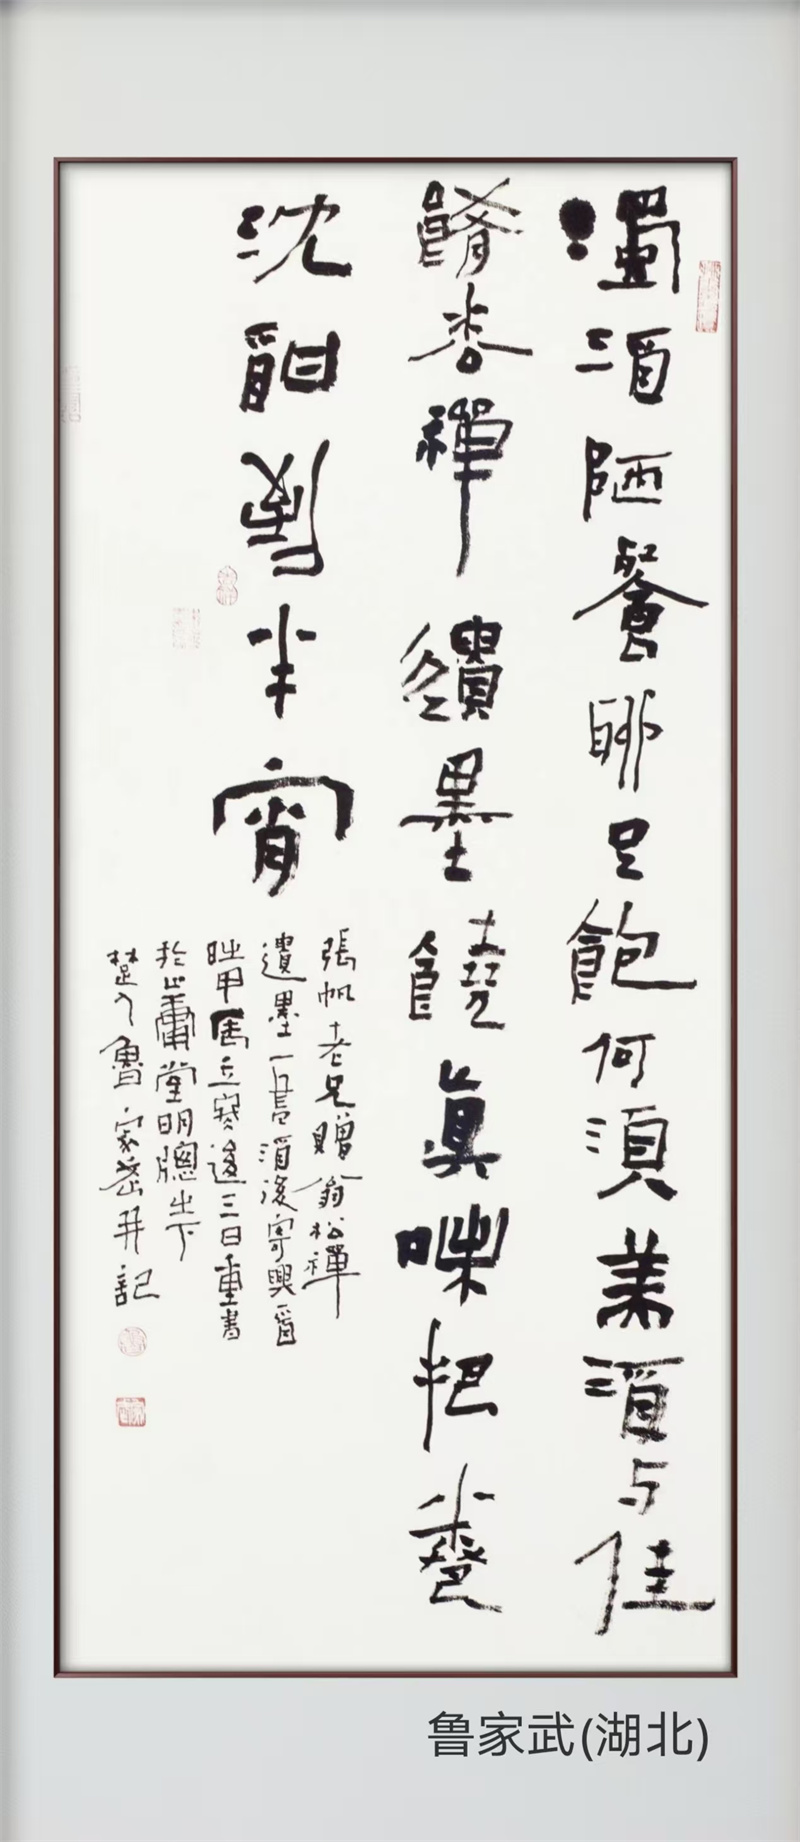 濁酒陋餐聊足飽何須美酒与佳
餚松禪繢墨饒真味把卷
沈酣半宵
張帆老兄贈翁松禪
遺墨一酒後寄興
時甲辰寒後三日重書
於堂明窗之下
楚人魯家武并記
鲁家武(湖北)